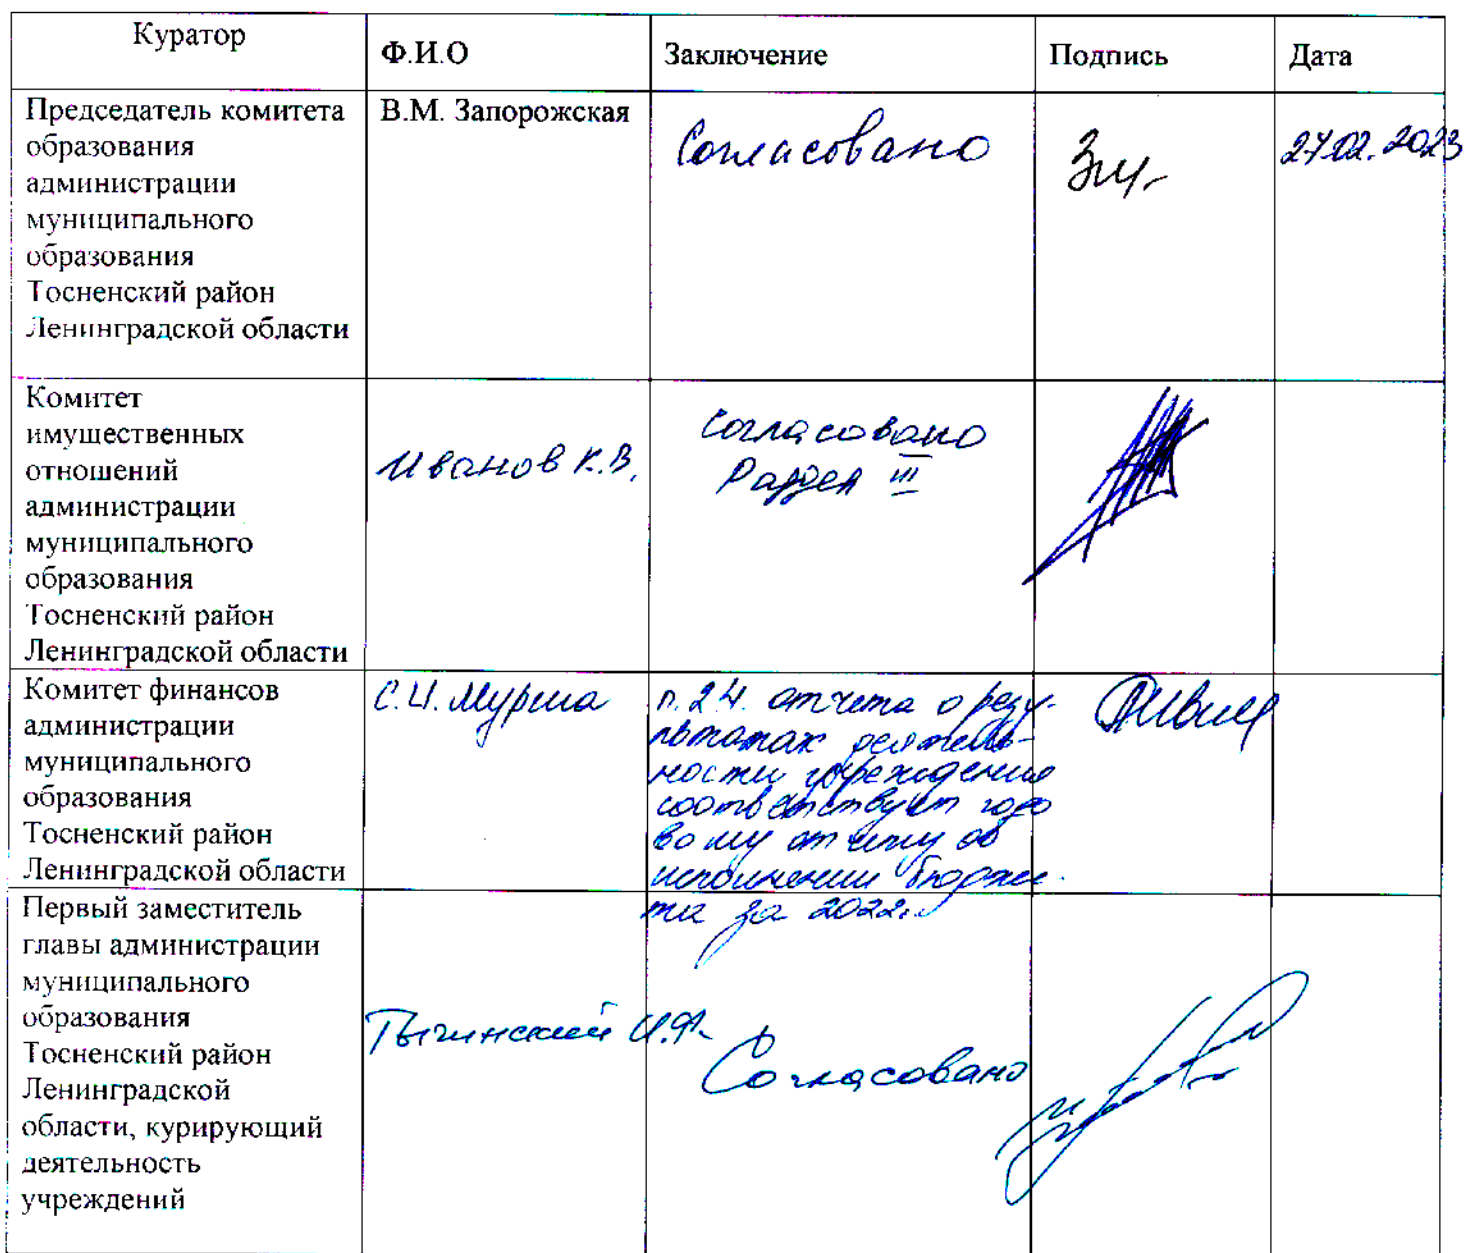 Куратор
Ф.И.О
Заключение
Подпись
Дата
Председатель комитета
образования
администрации
муниципального
образования
Тосненский район
Ленинградской области
В.М. Запорожская
Согласовано
27.02.2023
Комитет
имущественных
отношений
администрации
муниципального
образования
Тосненский район
Ленинградской области
Иванов К.В.
Согласовано
Раздел III
Комитет финансов
администрации
муниципального
образования
Тосненский район
Ленинградской области
п. 2.4. отчета о резу-
льтатах деятель-
ности учреждения
соответствует годо
вому отчету об
исполнении бюдже-
та за 2022г.
Первый заместитель
главы администрации
муниципального
образования
Тосненский район
Ленинградской
области, курирующий
деятельность
учреждений
Тычинский И.Ф.
Согласовано